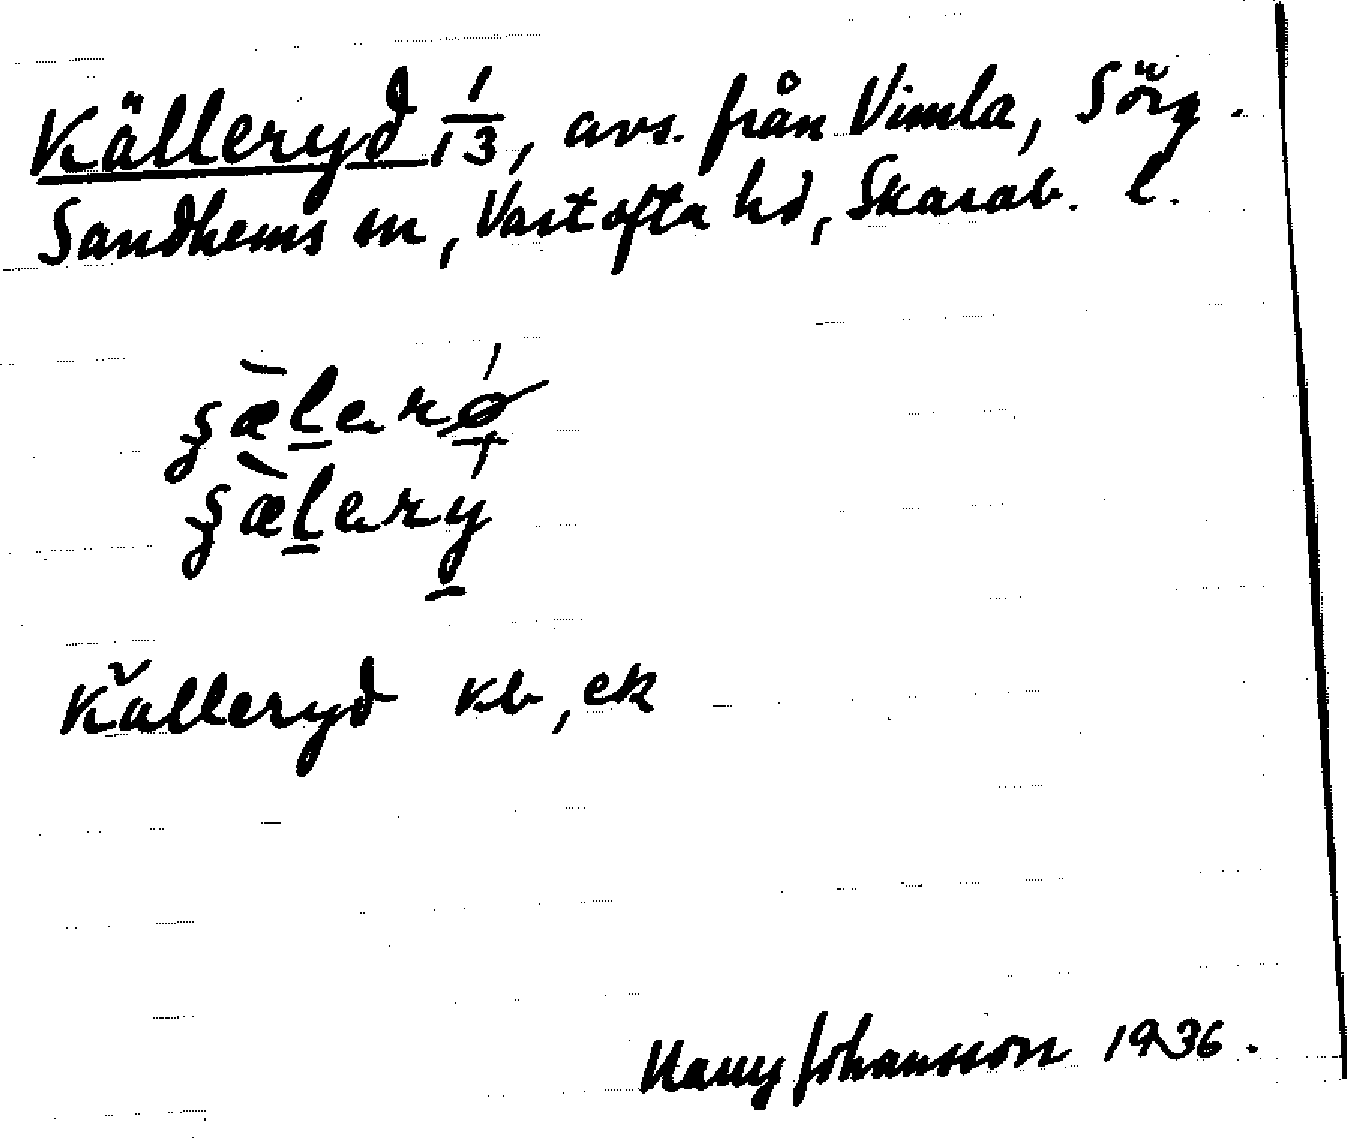 Källeryd 1/13, avs. från Vimla, Sörg.
Sandhems sn, Vartofta hd, Skarab. l.
Källeryd kb, ek
Harry Johansson 1936.